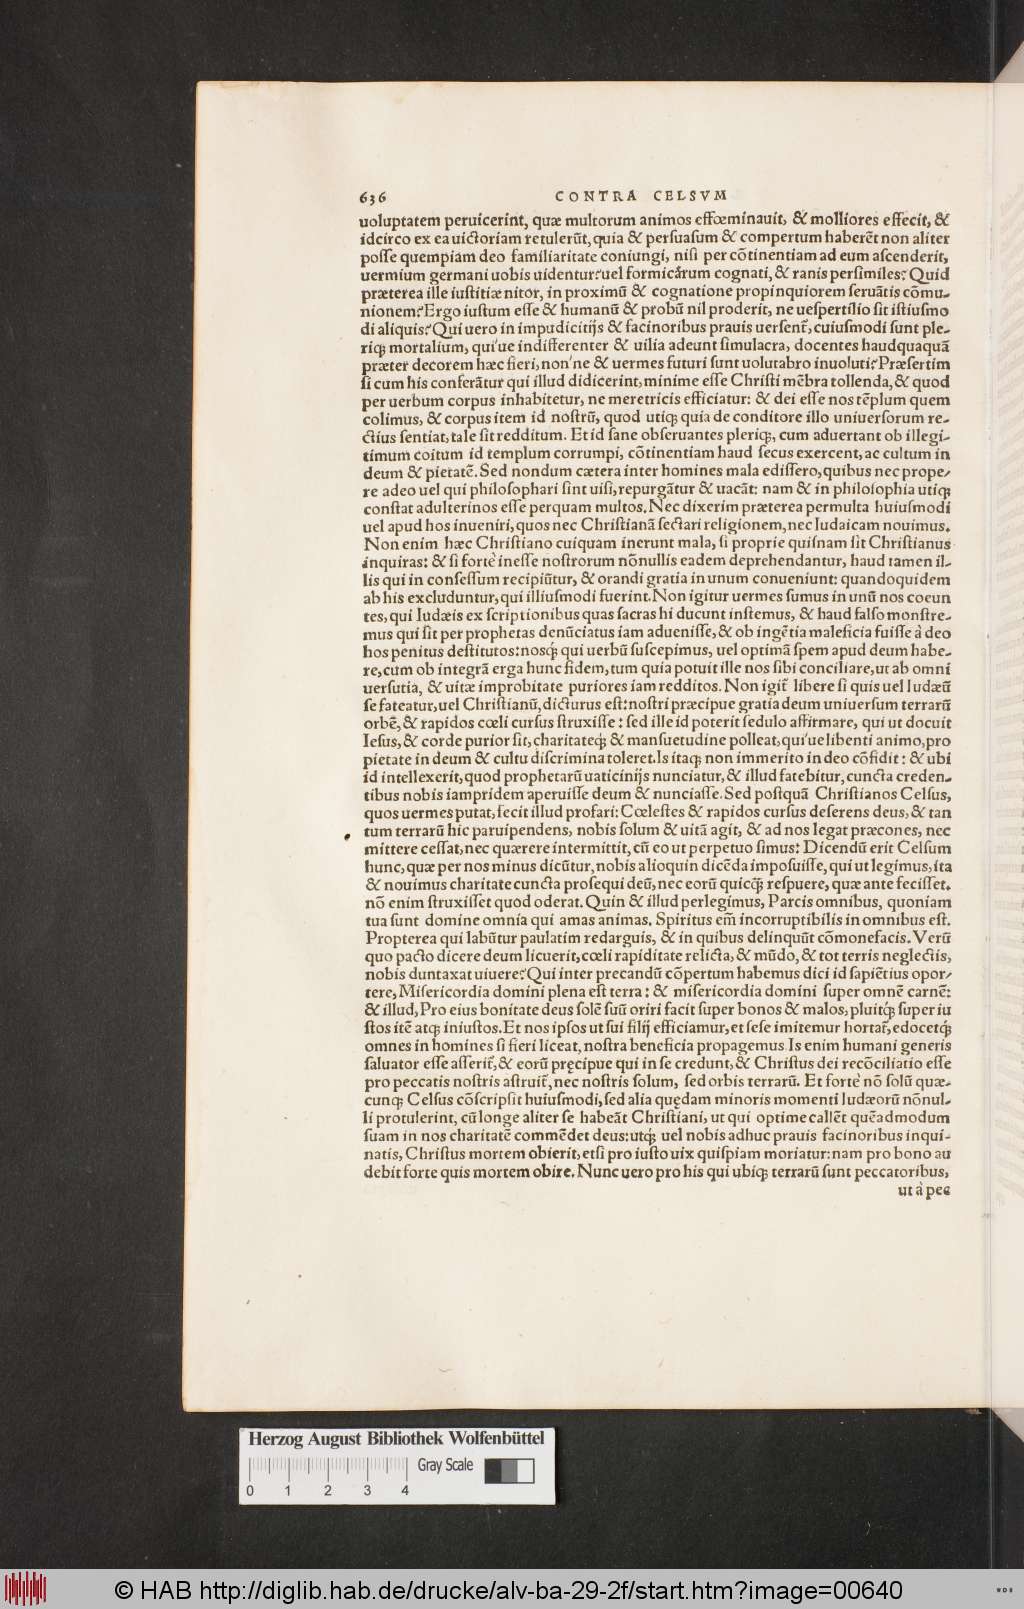 636 CONTRA CELSVM
uoluptatem peruicerint, quæ multorum animos effœminauit, & molliores effecit, &
idcirco ex ea uictoriam retulerũt, quia & persuasum & compertum haberẽt non aliter
posse quempiam deo familiaritate coniungi, nisi per cõtinentiam ad eum ascenderit,
uermium germani uobis uidentur? uel formicarum cognati, & ranis persimiles? Quid
præterea ille iustitiæ nitor, in proximũ & cognatione propinquiorem seruãtis cõmu-
nionem? Ergo iustum esse & humanũ & probũ nil proderit, ne uespertilio sit istiusmo
di aliquis? Qui uero in impudicitijs & facinoribus prauis uersent᷑, cuiusmodi sunt ple-
riqꝫ mortalium, qui'ue indifferenter & uilia adeunt simulacra, docentes haudquaquã
præter decorem hæc fieri, non'ne & uermes futuri sunt uolutabro inuoluti? Præsertim
si cum his conferãtur qui illud didicerint, minime esse Christi mẽbra tollenda, & quod
per uerbum corpus inhabitetur, ne meretricis efficiatur: & dei esse nos tẽplum quem
colimus, & corpus item id nostrũ, quod utiqꝫ quia de conditore illo uniuersorum re-
ctius sentiat, tale sit redditum. Et id sane obseruantes pleriqꝫ, cum aduertant ob illegi-
timum coitum id templum corrumpi, cõtinentiam haud secus exercent, ac cultum in
deum & pietatẽ. Sed nondum cætera inter homines mala edissero, quibus nec prope-
re adeo uel qui philosophari sint uisi, repurgãtur & uacãt: nam & in philosophia utiqꝫ
constat adulterinos esse perquam multos. Nec dixerim præterea permulta huiusmodi
uel apud hos inueniri, quos nec Christianã sectari religionem, nec Iudaicam nouimus.
Non enim hæc Christiano cuiquam inerunt mala, si proprie quisnam sit Christianus
inquiras: & si fortè inesse nostrorum nõnullis eadem deprehendantur, haud tamen il-
lis qui in consessum recipiũtur, & orandi gratia in unum conueniunt: quandoquidem
ab his excluduntur, qui illiusmodi fuerint. Non igitur uermes sumus in unũ nos coeun
tes, qui Iudæis ex scriptionibus quas sacras hi ducunt instemus, & haud falso monstre-
mus qui sit per prophetas denũciatus iam aduenisse, & ob ingẽtia maleficia fuisse à deo
hos penitus destitutos: nosqꝫ qui uerbũ suscepimus, uel optimã spem apud deum habe-
re, cum ob integrã erga hunc fidem, tum quia potuit ille nos sibi conciliare, ut ab omni
uersutia, & uitæ improbitate puriores iam redditos. Non igit᷑ libere si quis uel Iudæũ
se fateatur, uel Christianũ, dicturus est: nostri præcipue gratia deum uniuersum terrarũ
orbẽ, & rapidos cœli cursus struxisse: sed ille id poterit sedulo affirmare, qui ut docuit
Iesus, & corde purior sit, charitateqꝫ & mansuetudine polleat, qui'ue libenti animo, pro
pietate in deum & cultu discrimina toleret. Is itaqꝫ non immerito in deo cõfidit: & ubi
id intellexerit, quod prophetarũ uaticinijs nunciatur, & illud fatebitur, cuncta creden-
tibus nobis iampridem aperuisse deum & nunciasse. Sed postquã Christianos Celsus,
quos uermes putat, fecit illud profari: Cœlestes & rapidos cursus deserens deus, & tan
tum terrarũ hic paruipendens, nobis solum & uitã agit, & ad nos legat præcones, nec
mittere cessat, nec quærere intermittit, cũ eo ut perpetuo simus: Dicendũ erit Celsum
hunc, quæ per nos minus dicũtur, nobis alioquin dicẽda imposuisse, qui ut legimus, ita
& nouimus charitate cuncta prosequi deũ, nec eorũ quicqꝫ respuere, quæ ante fecisset.
nõ enim struxisset quod oderat. Quin & illud perlegimus, Parcis omnibus, quoniam
tua sunt domine omnia qui amas animas. Spiritus em̃ incorruptibilis in omnibus est.
Propterea qui labũtur paulatim redarguis, & in quibus delinquũt cõmonefacis. Verũ
quo pacto dicere deum licuerit, cœli rapiditate relicta, & mũdo, & tot terris neglectis,
nobis duntaxat uiuere? Qui inter precandũ cõpertum habemus dici id sapiẽtius opor-
tere, Misericordia domini plena est terra: & misericordia domini super omnẽ carnẽ:
& illud, Pro eius bonitate deus solẽ suũ oriri facit super bonos & malos, pluitqꝫ super iu
stos itẽ atqꝫ iniustos. Et nos ipsos ut sui filij efficiamur, et sese imitemur hortat᷑, edocetqꝫ
omnes in homines si fieri liceat, nostra beneficia propagemus Is enim humani generis
saluator esse asserit᷑, & eorũ pręcipue qui in se credunt, & Christus dei recõciliatio esse
pro peccatis nostris astruit᷑, nec nostris solum, sed orbis terrarũ. Et fortè nõ solũ quæ-
cunqꝫ Celsus cõscripsit huiusmodi, sed alia quędam minoris momenti Iudæorũ nõnul-
li protulerint, cũ longe aliter se habeãt Christiani, ut qui optime callẽt quẽadmodum
suam in nos charitatẽ commẽdet deus: utqꝫ uel nobis adhuc prauis facinoribus inqui-
natis, Christus mortem obierit, etsi pro iusto uix quispiam moriatur: nam pro bono au
debit forte quis mortem obire. Nunc uero pro his qui ubiqꝫ terrarũ sunt peccatoribus,
ut à pec
Herzog August Bibliothek Wolfenbüttel
Gray Scale
0 1 2 3 4
© HAB http://diglib.hab.de/drucke/alv-ba-29-2f/start.htm?image=00640